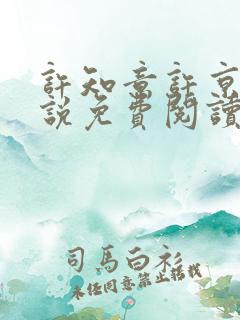 許知意許京
說免費閱讀
司馬白衫
未經同意禁止搭載